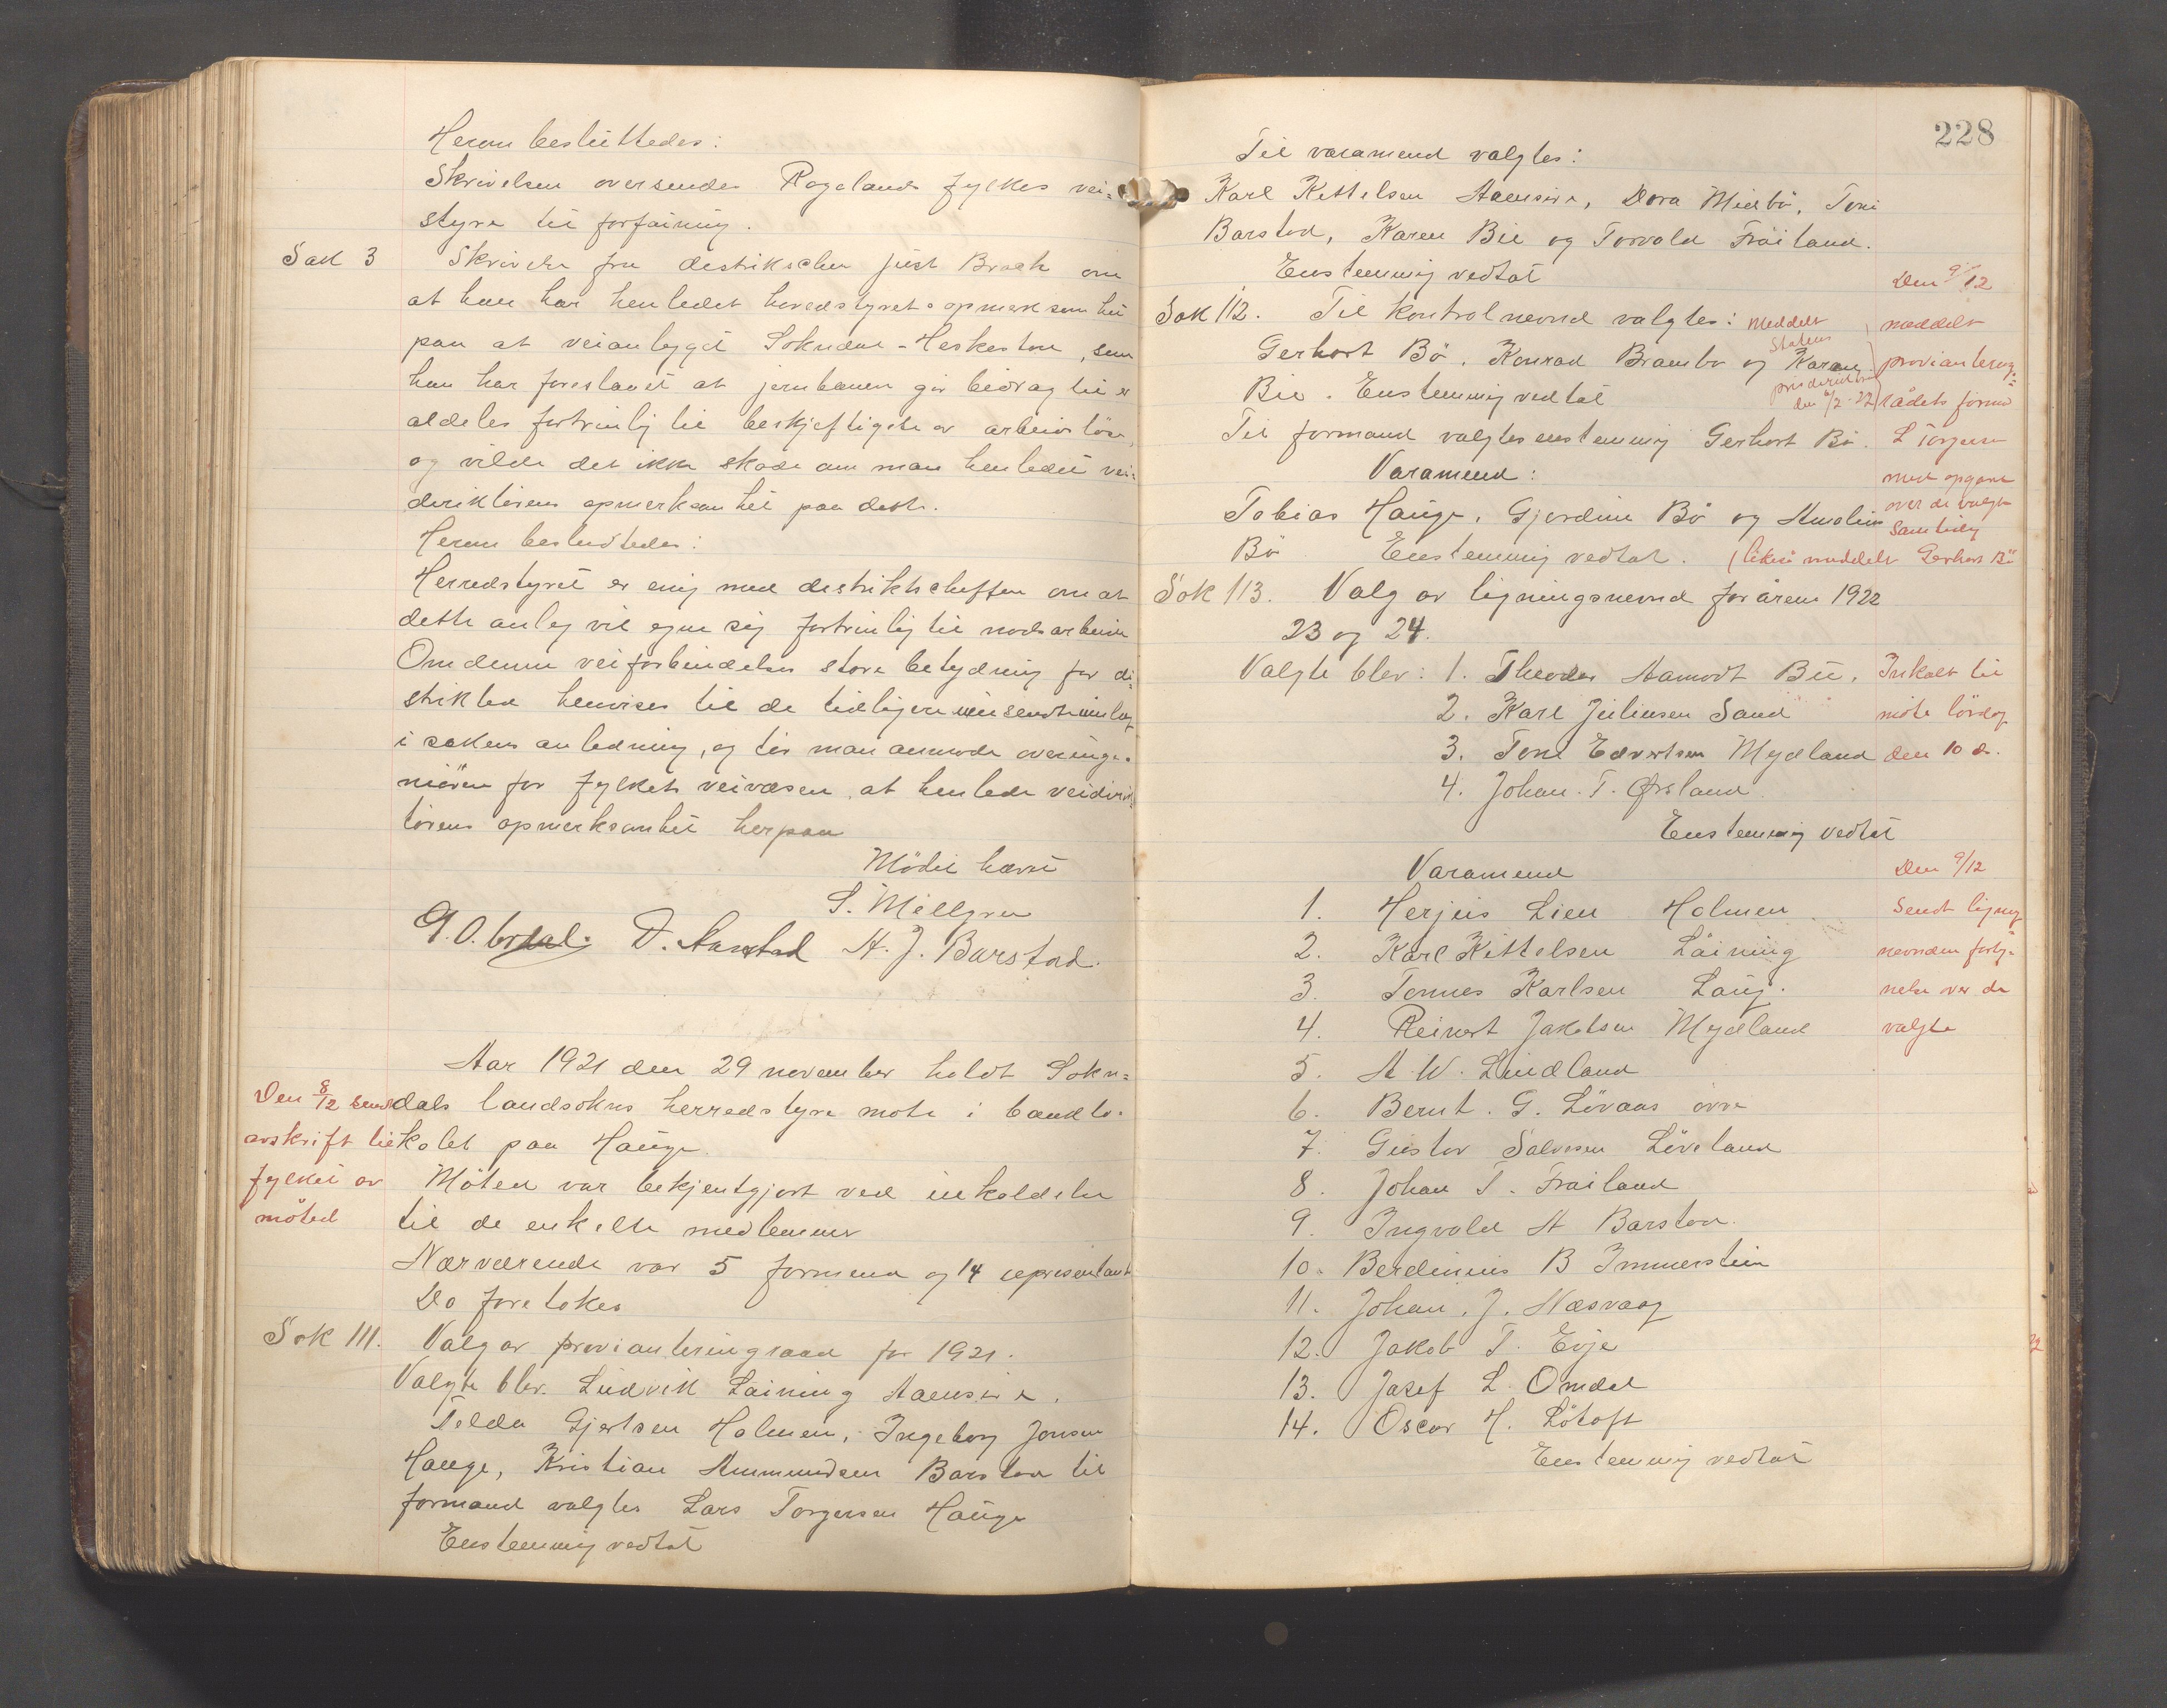 Herom besluttedes:
Skrivelsen oversendes Rogaland fylkes vei=
styre til forføining.
Sak 3
Skrivelse fra distrikschef Just Broch om
at han har henledet heredstyrets opmerksomhet
paa at veianlegget Sokndal - Heskestad, som
han har foreslaaet at jernbanen gir bidrag til er
aldeles fortrinlig til beskjeftigelse av arbeidsløse,
og vilde det ikke skade om man henledet vei=
direktørens opmerksomhet paa dette.
Herom besluttedes:
Herredstyret er enig med distriktscheffen om at
dette anleg vil egne sig fortrinlig til nødsarbeide
Om denne veiforbindelses store betydning for di=
striktet henvises til de tidligere innsendte innlæg
i sakens anledning, og tør man anmode overinge=
niøren for fylkets veivæsen, at henlede veidirek=
tørens opmerksomhet herpaa
Mødet hævet
S. Mellgren
D. Aarstad A. J. Barstad.
Aar 1921 den 29 november holdt Sokn=
dals landsokns herredstyre møte i banklo=
kalet paa Hauge.
Den 8/12 sendt
avskrift til
fylket av
møtet
Møtet var bekjentgjort ved innkaldelse
til de enkelte medlemmer
Nærværende var 5 formend og 14 representanter
Da foretokes
Sak 111.
Valg av provianteringsraad for 1921.
Valgte blev. Ludvik Løining Aaensire.
Telda Gjertsen Holmen, Ingeborg Jonsen
Hauge, Kristian Ammundsen Barstad til
formand valgtes Lars Torgersen Hauge
Enstemmig vedtat
228
Til varamend valgtes:
Karl Kittelsen Aaensire, Dora Midbø, Toni
Barstad, Karen Bie og Torvald Frøiland.
Enstemmig vedtat
Sak 112. Til kontrolnevnd valgtes:
Gerhart Bø, Konrad Brambo og Karen
Bie. Enstemmig vedtat
Meddelt
Statens
prisdirektør
den 6/2-22
Til formand valgtes enstemmig Gerhart Bø.
Varamend:
Tobias Hauge, Gjordine Bø og Amalie
Bø Enstemmig vedtat. (likeså meddelt Gerhart Bø
Den 9/12
meddelt
provianterings=
rådets formd
L Torgersen
med opgave
over de valgte
Samtidig
Sak 113. Valg av ligningsnevnd for årene 1922
23 og 24.
Valgte blev: 1. Theodor Aamodt Bie.
2. Karl Juliusen Sand
3. Tone Edvertsen Mydland
4. Johan. T. Ørsland
Enstemmig vedtat
Inkalt til
møte lørdag
den 10 ds.
Varamend
1. Herjus Lien Holmen
2. Karl Kittelsen Løining
3. Tonnes Karlsen Laug.
4. Reinert Jakobsen Mydland
5. A. W. Lindland
6. Bernt. G. Løvaas øvre
7. Gustav Salvesen Løveland
8. Johan T. Frøiland
9. Ingvald A Barstad.
10. Berdinius B Immerstein
11. Johan. J. Næsvaag
12. Jakob T. Evje
13. Josef L. Omdal
14. Oscar H. Løtoft
Enstemmig vedtat
Den 9/12
Sendt lignings
nevnden forteg=
nelse over de
valgte